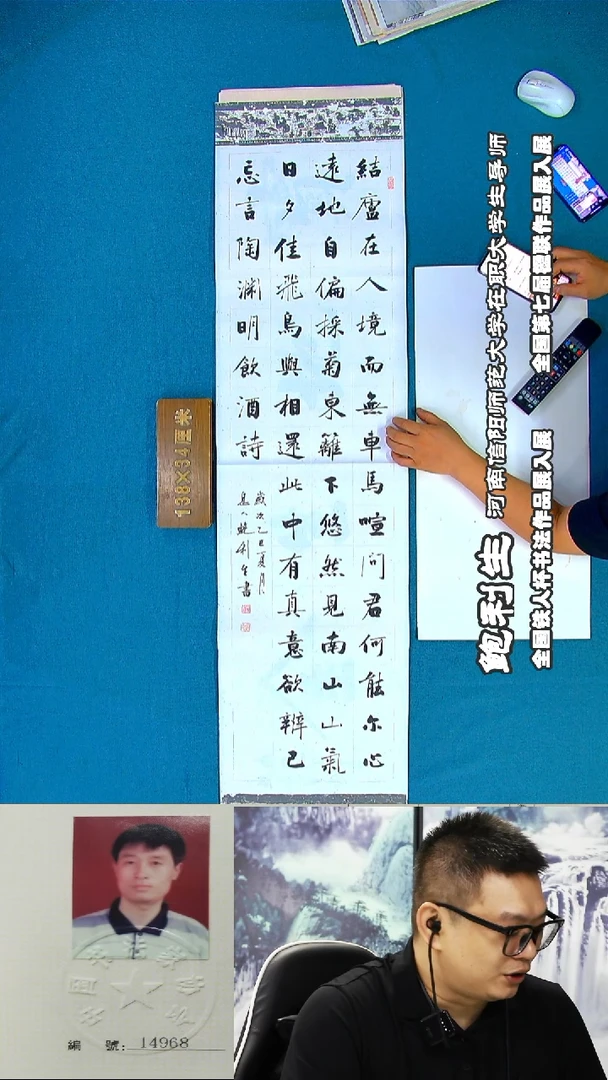 結廬在人境而無車馬喧問君何能尔心
遠地自偏採菊東籬下悠然見南山山氣
日夕佳飛鳥與相還此中有真意欲辨已
忘言陶渊明飲酒詩
歲次乙巳夏月
鮑利生書
138×34厘米
鲍利生 河南信阳师范大学在职大学生导师
全国铁人杯书法作品展入展 全国第七届楹联作品展入展
編 號：14968